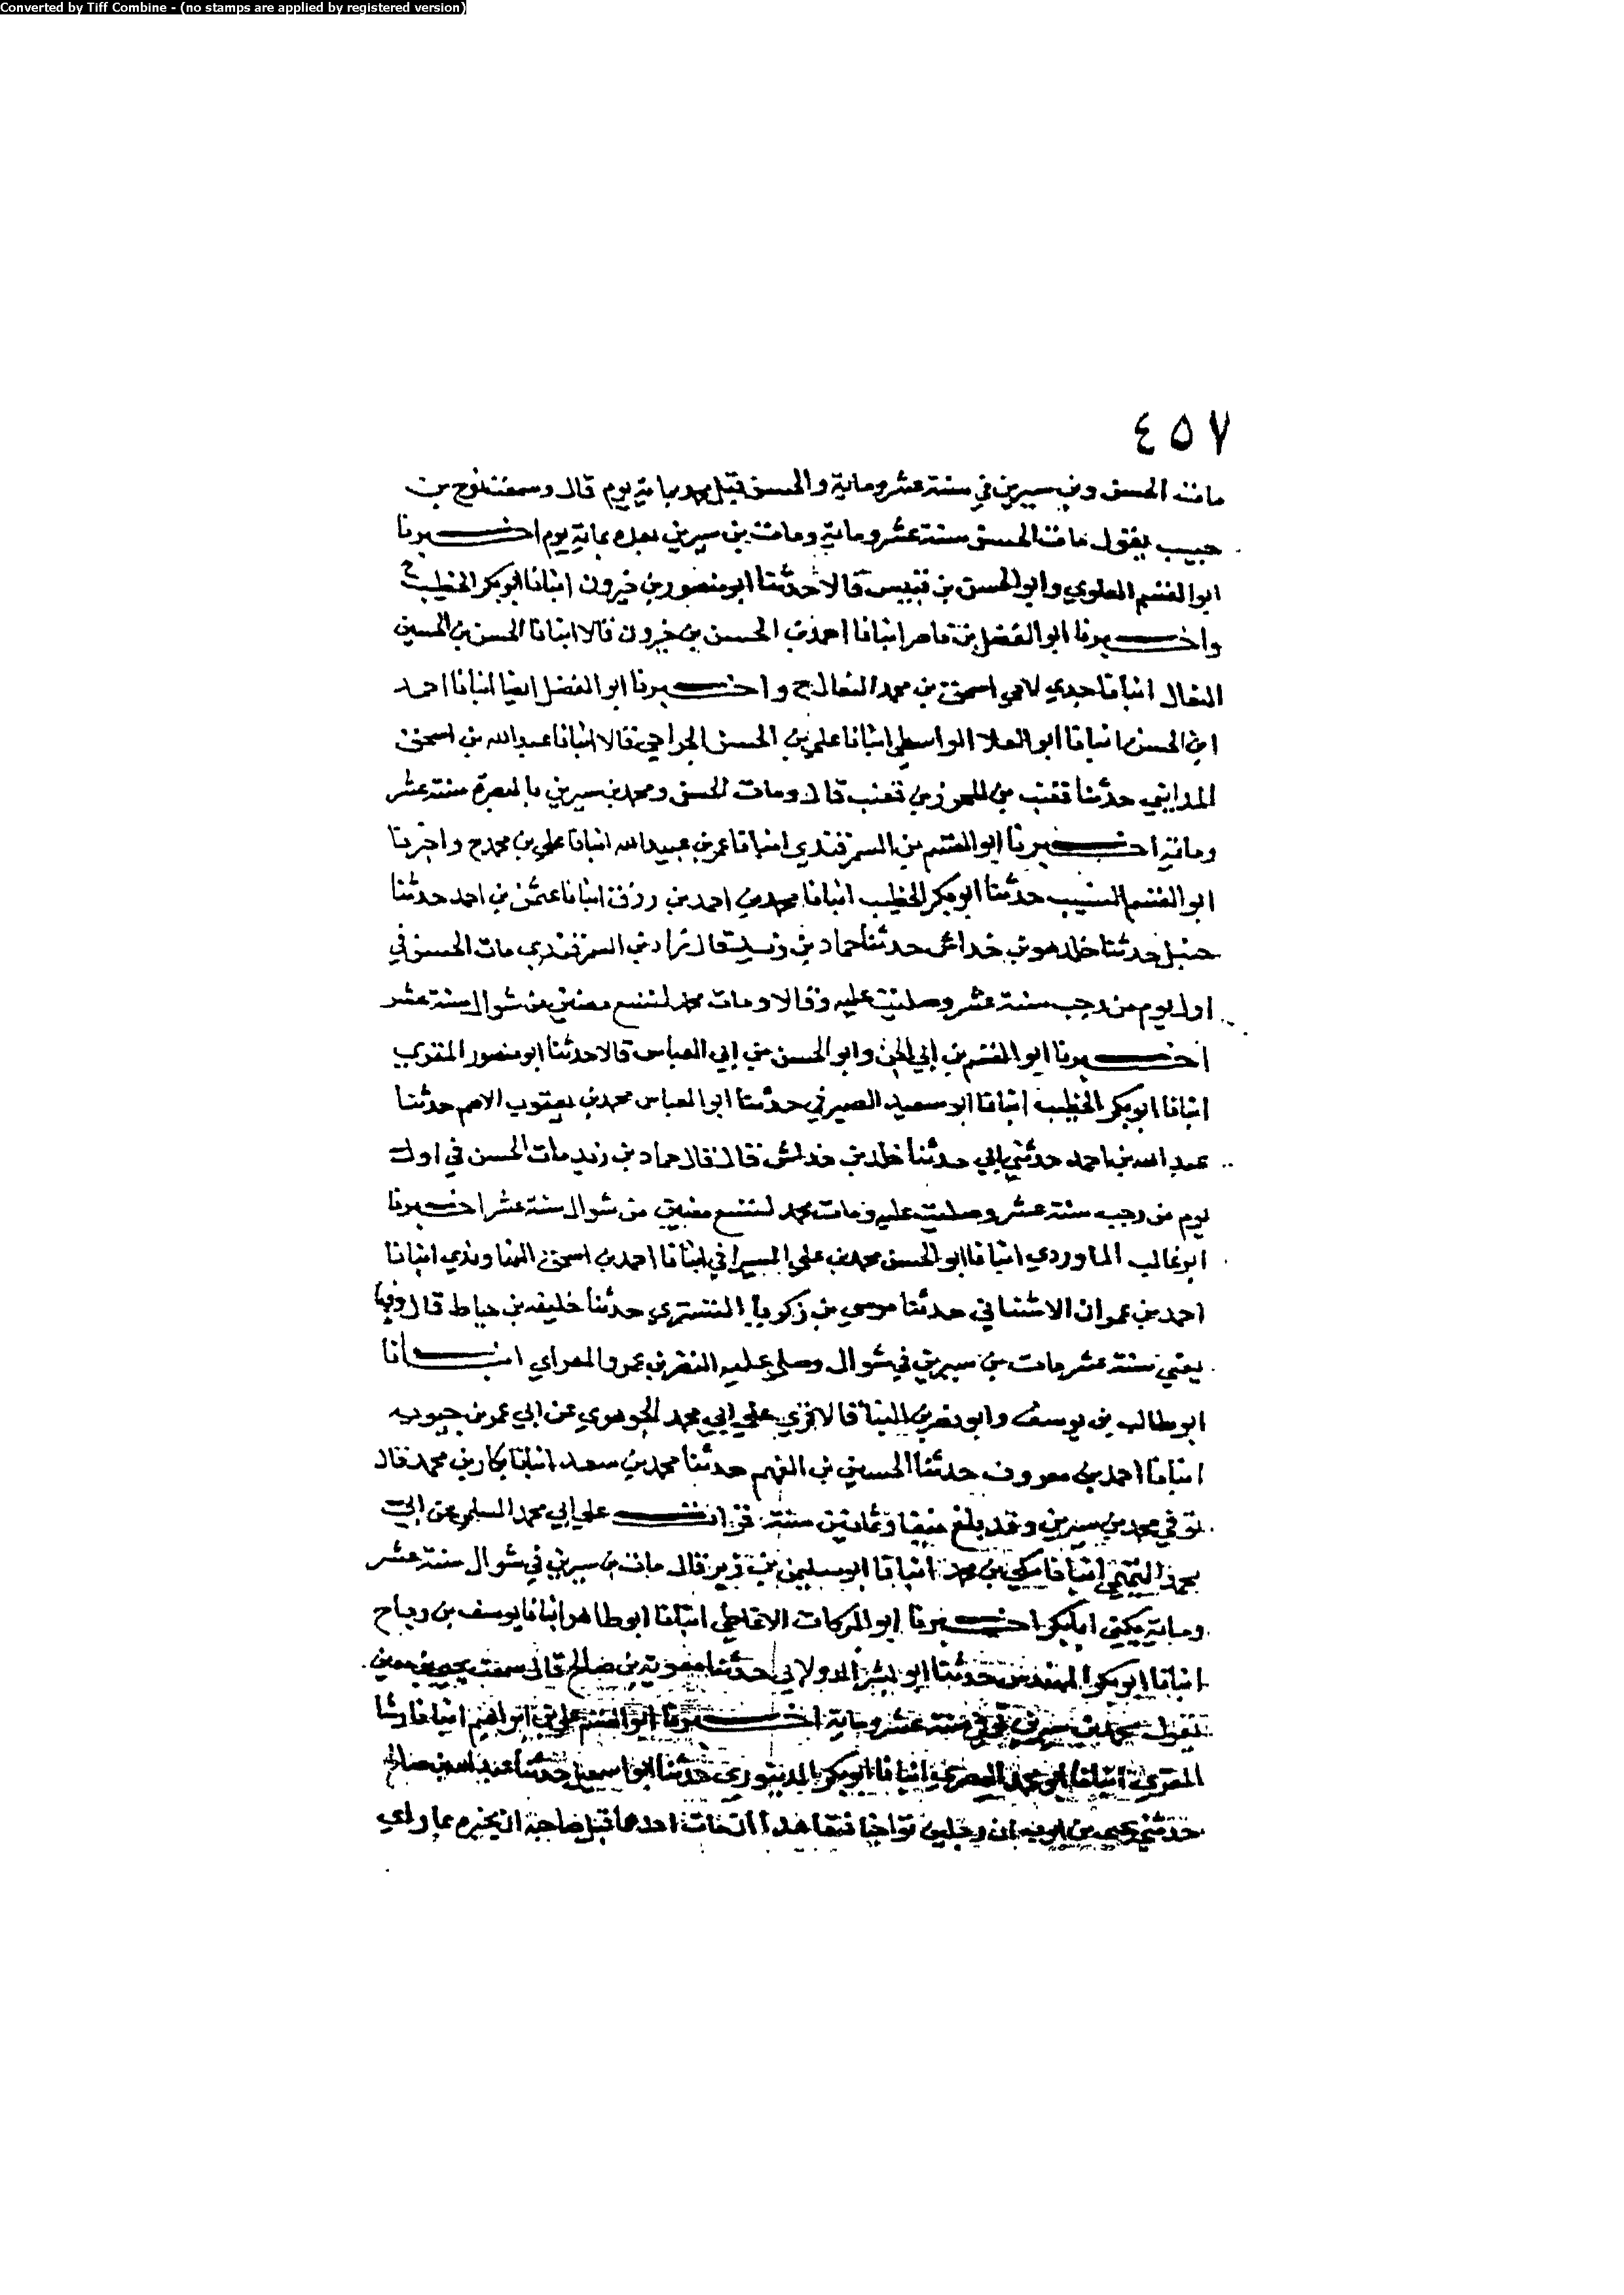 Converted by Tiff Combine - (no stamps are applied by registered version)
٤٥٧
مات الحسن وبن سيرين في سنة عشر وماية والحسن قبل محمد بماية يوم قال وسمعت نوح بن
حبيب يقول مات الحسن سنة عشر وماية ومات بن سيرين بعده بماية يوم اخبرنا
ابو القسم العلوي وابو الحسن بن قبيس قالا حدثنا ابو منصور بن خيرون انبانا ابو بكر الخطيب ح
واخبرنا ابو الفضل بن ناصر انبانا احمد بن الحسن بن خيرون قالا انبانا الحسن بن الحسين
النعال انبانا جدي لامي اسحق بن محمد النعالي ح واخبرنا ابو الفضل ايضا انبانا احمد
ابن الحسن انبانا ابو العلا الواسطي انبانا علي بن الحسن الجراحي قالا انبانا عبد الله بن اسحق
المدايني حدثنا قعنب بن المحرز بن قعنب قال ومات الحسن ومحمد بن سيرين بالبصرة سنة عشر
وماية اخبرنا ابو القسم بن السمرقندي انبانا عمر بن عبيد الله انبانا علي بن محمد ح واخبرنا
ابو القسم النسيب حدثنا ابو بكر الخطيب انبانا محمد بن احمد بن رزق انبانا عثمن بن احمد حدثنا
حنبل حدثنا خلد هو بن خداش حدثنا حماد بن زيد قال زاد بن السمرقندي مات الحسن في
اول يوم من رجب سنة عشر وصليت عليه وقالا ومات محمد لتسع مضين من شوال سنة عشر
اخبرنا ابو القسم بن ابي الجن وابو الحسن بن ابي العباس قالا حدثنا ابو منصور المقري
انبانا ابو بكر الخطيب انبانا ابو سعيد الصيرفي حدثنا ابو العباس محمد بن يعقوب الاصم حدثنا
عبد الله بن احمد حدثني ابي حدثنا خلد بن خداش قال قال حماد بن زيد مات الحسن في اول
يوم من رجب سنة عشر وصليت عليه ومات محمد لتسع مضين من شوال سنة عشر اخبرنا
ابو غالب الماوردي انبانا ابو الحسن محمد بن علي السيرافي انبانا احمد بن اسحق النهاوندي انبانا
احمد بن عمران الاشناني حدثنا موسي بن زكريا التستري حدثنا خليفه بن خياط قال وفيها
يعني سنة عشر مات بن سيرين في شوال وصلي عليه النضر بن عمرو المعراي انبانا
ابو طالب بن يوسف وابو نصر بن البنا قالا قري علي ابي محمد الجوهري عن ابي عمر بن حيويه
انبانا احمد بن معروف حدثنا الحسين بن الفهم حدثنا محمد بن سعد انبانا بكار بن محمد قال
توفي محمد بن سيرين وقد بلغ نيفا وثمانين سنة قرات علي ابي محمد السلمي عن ابي
محمد التميمي انبانا مكي بن محمد انبانا ابو سليمن بن زبر قال مات بن سيرين في شوال سنة عشر
وماية يكني ابا بكر اخبرنا ابو البركات الانماطي انبانا ابو طاهر انبانا يوسف بن رباح
انبانا ابو بكر المهندس حدثنا ابو بشر الدولابي حدثنا معوية بن صالح قال سمعت يحيي بن معين
يقول محمد بن سيرين توفي سنة عشر وماية اخبرنا ابو القسم علي بن ابراهيم انبانا رشا
المقري انبانا ابو محمد المصري انبانا ابو بكر الدينوري حدثنا ابو اسمعيل حدثنا عبد الله بن صالح
حدثني يحيي بن ايوب ان رجلين تواخيا فتعاهدا ان مات احدهما قبل صاحبه ان يخبره بما راي